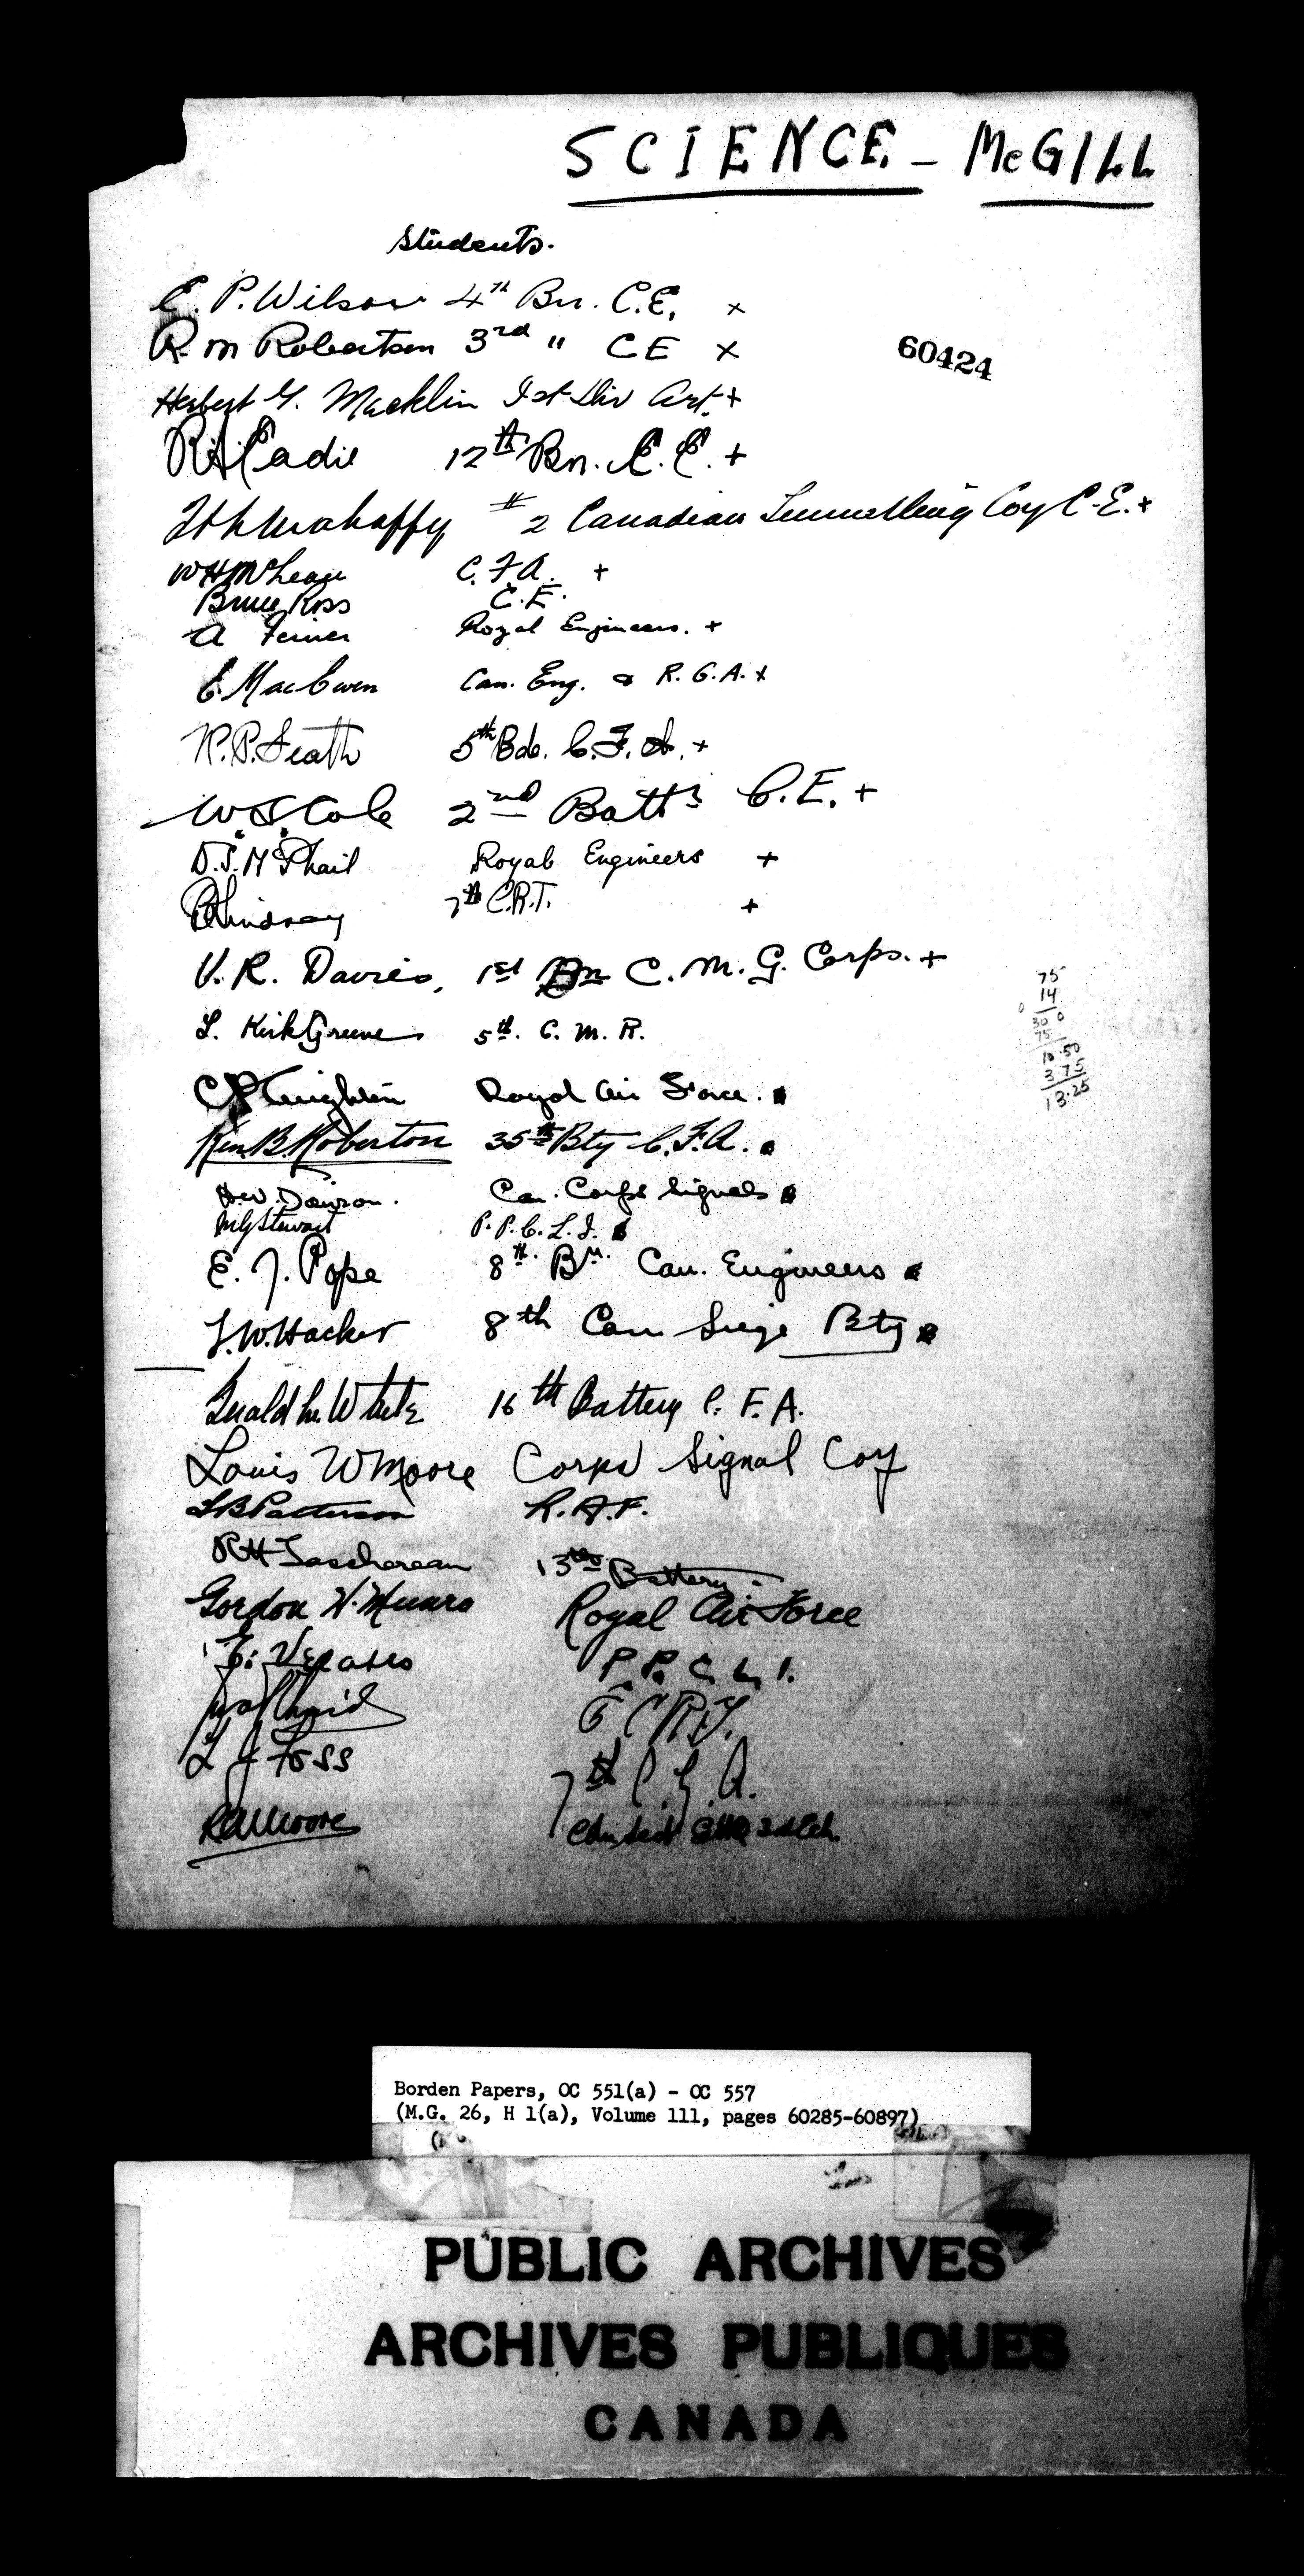 SCIENCE - McGILL
Students.
E. P. Wilson 4th Bn. C.E. x
R. M Robertson 3rd " CE x
60424
Herbert G. Macklin 1st Div Art. +
Cadie 12th Bn. C.E. +
Mahaffy # 2 Canadian Tunnelling Coy C.E. +
W H McLean C.F.A. +
Bruce Ross C.E.
A Ferrier Royal Engineers. +
E. MacEwen Can. Eng. & R.G.A. x
5th Bde. C.F.A. +
W S Cole 2nd Battn C.E. +
D.S. McPhail Royal Engineers +
Lindsay 7th C.R.T. +
V. R. Davies, 1st Bn C.M.G. Corps. +
75
14
300
75
10.50
3 75
13.25
L. Kirk Greene 5th. C.M.R.
Royal Air Force.
Ken. B. Roberton 35th Bty C.F.A.
H.W. Dawson. Can. Corps Signals
M G Stewart P.P.C.L.I.
E. J. Pope 8th. Bn. Can. Engineers
L.W. Hacker 8th Can Siege Bty
Gerald White 16th Battery C.F.A.
Louis W Moore Corps Signal Coy
L B Patterson R.A.F.
R H Taschereau 13th Battery.
Gordon H. Munro Royal Air Force
P.P.C.L.I.
L J Foss 7th
R A Moore
Borden Papers, OC 551(a) - OC 557
(M.G. 26, H 1(a), Volume 111, pages 60285-60897)
PUBLIC ARCHIVES
ARCHIVES PUBLIQUES
CANADA